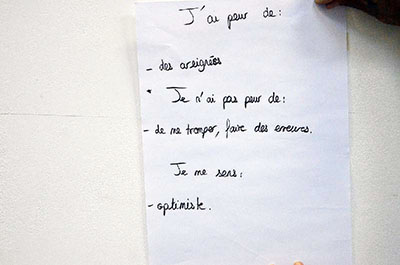 J'ai peur de :
- des areignées
Je n'ai pas peur de :
- de me tromper, faire des erreurs.
Je me sens :
- optimiste.